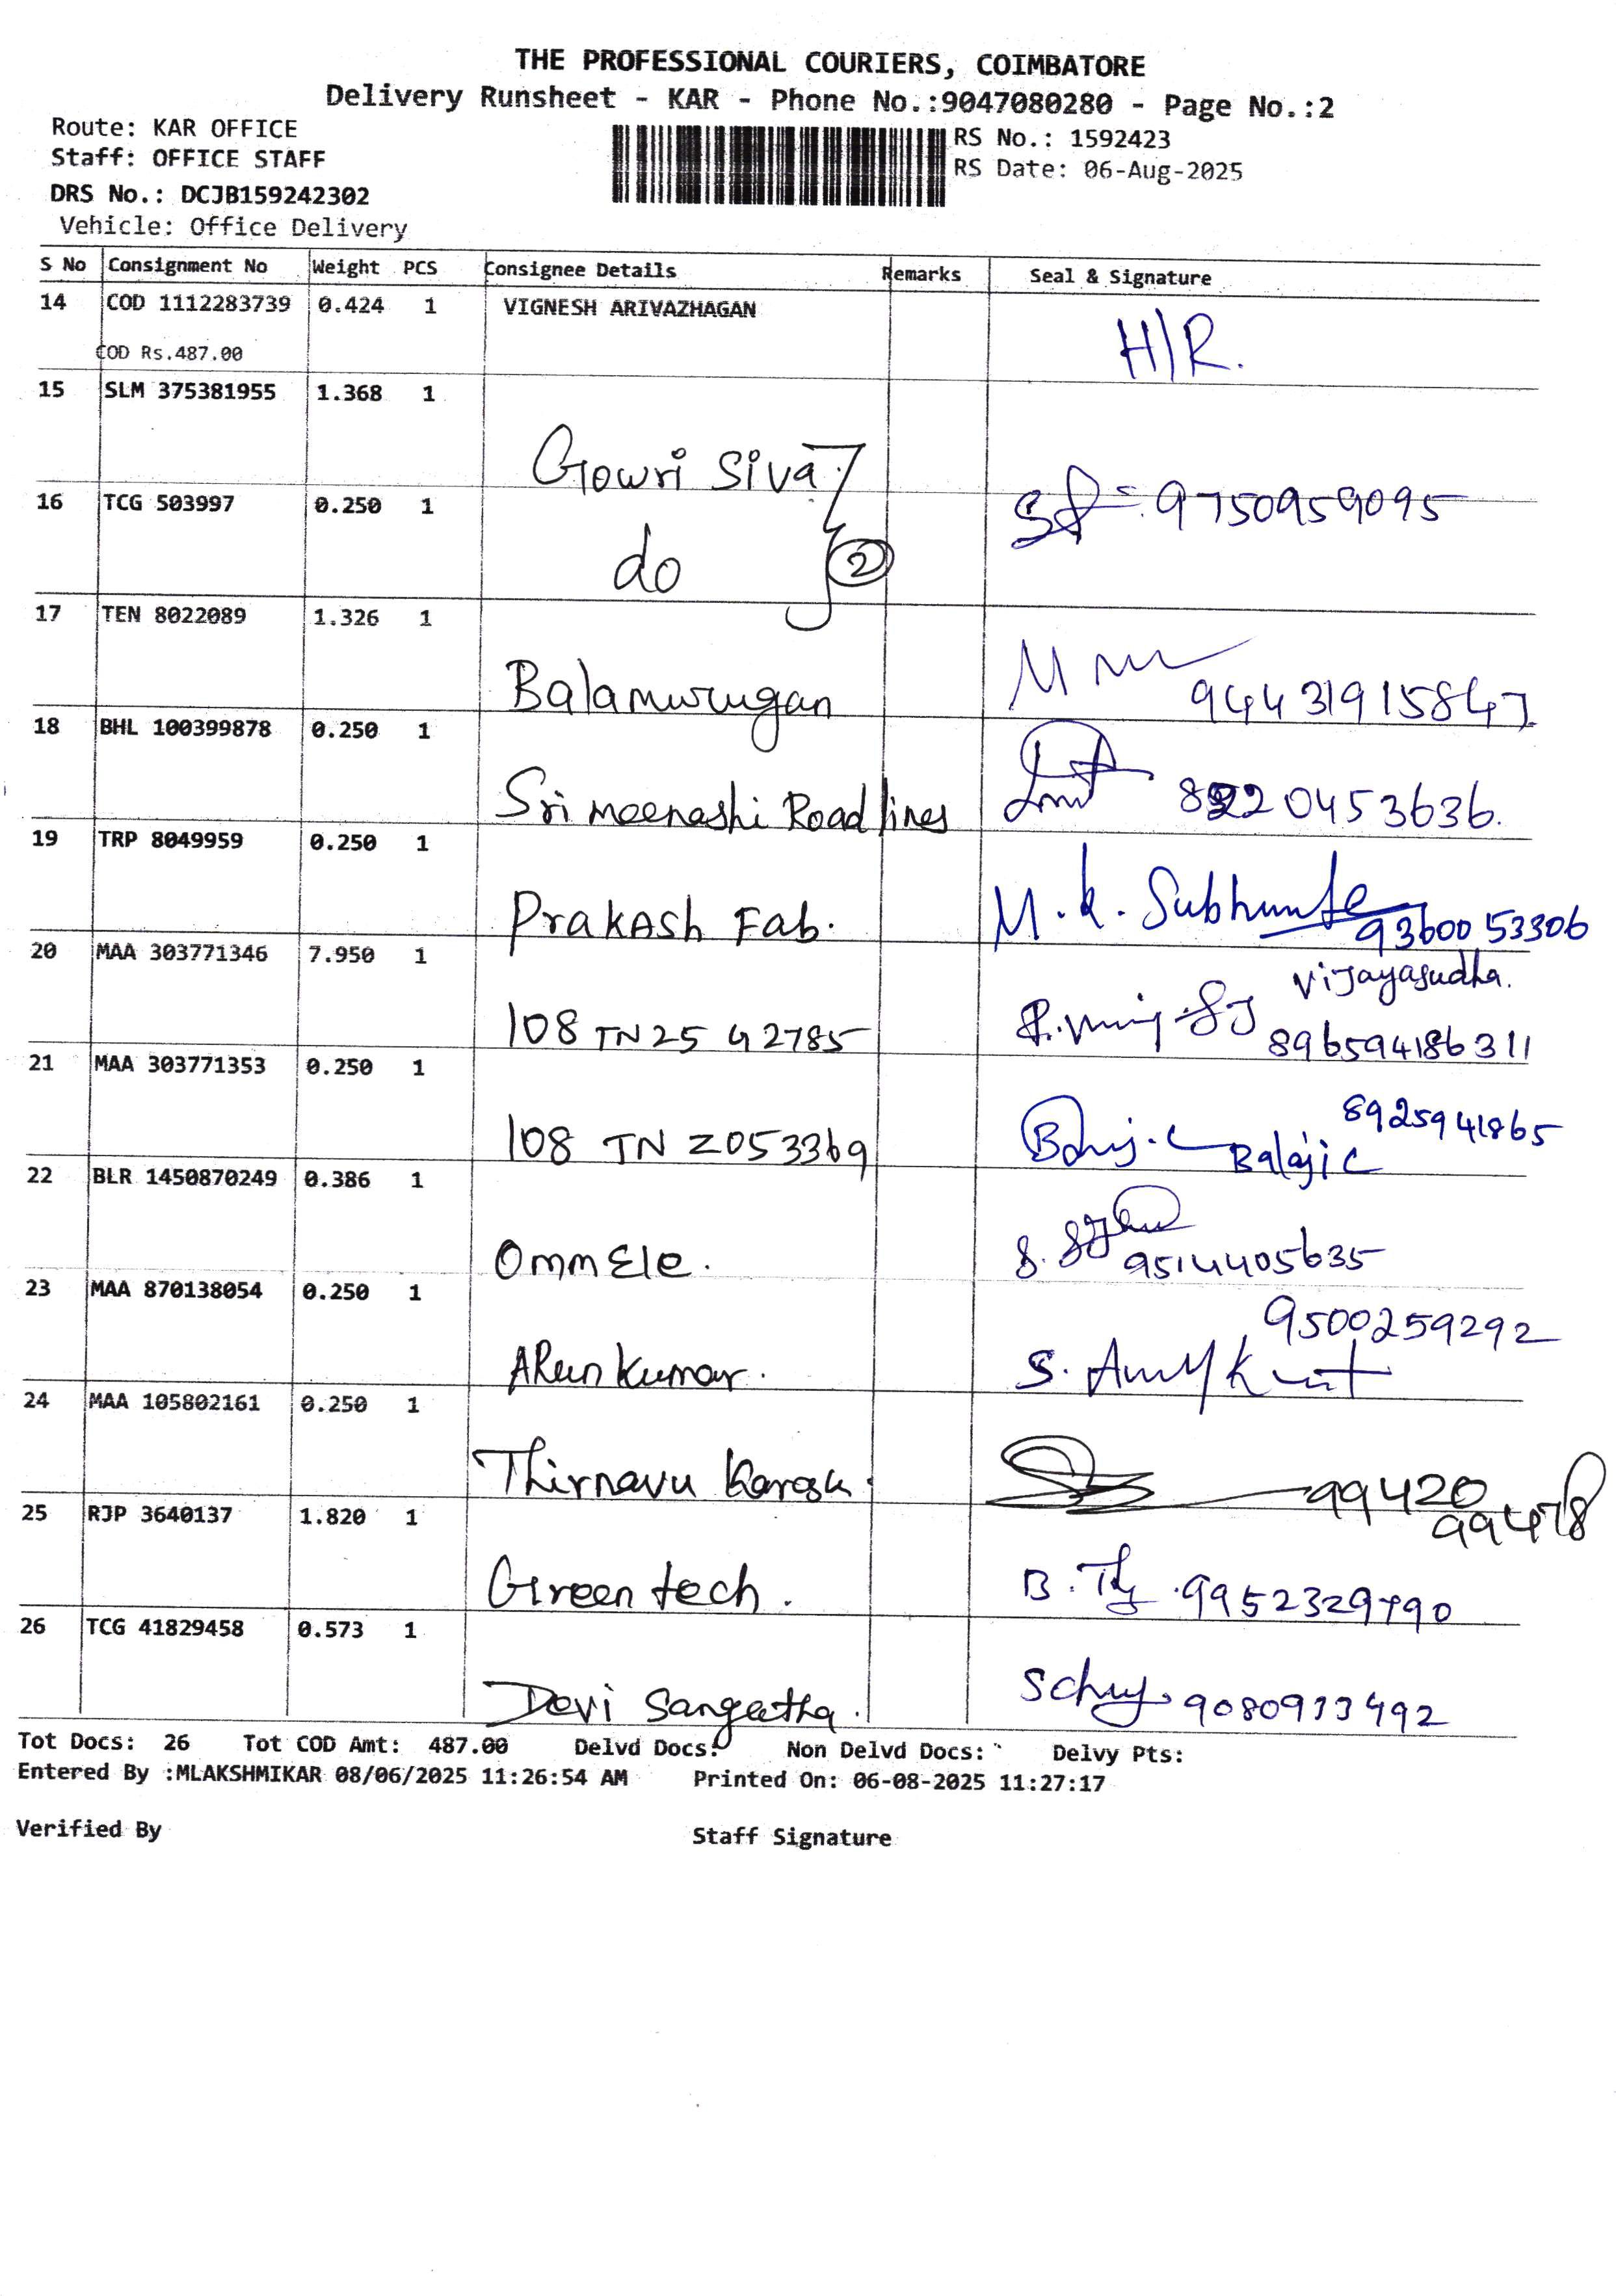 THE PROFESSIONAL COURIERS, COIMBATORE
Delivery Runsheet - KAR - Phone No.:9047080280 - Page No.:2
Route: KAR OFFICE
Staff: OFFICE STAFF
DRS No.: DCJB159242302
Vehicle: Office Delivery
RS No.: 1592423
RS Date: 06-Aug-2025
S No Consignment No Weight PCS Consignee Details Remarks Seal & Signature
14 COD 1112283739 0.424 1 VIGNESH ARIVAZHAGAN H/R.
COD Rs.487.00
15 SLM 375381955 1.368 1
Gowri Siva
16 TCG 503997 0.250 1 9750959095
do 2
17 TEN 8022089 1.326 1
Balamurugan 94431915847
18 BHL 100399878 0.250 1
Sri meenashi Road lines 8220453636.
19 TRP 8049959 0.250 1
Prakash Fab. M.K. 9360053306
20 MAA 303771346 7.950 1 Vijayasudha.
108 TN25 G 2785 896594186311
21 MAA 303771353 0.250 1 8925941865
108 TN Z053369 Balaji C
22 BLR 1450870249 0.386 1
Omm Ele. 9514405635
23 MAA 870138054 0.250 1 9500259292
ARun Kumar. S.
24 MAA 105802161 0.250 1
Thirnavu Karasu. 99420
25 RJP 3640137 1.820 1 99478
Green tech. B. 9952329790
26 TCG 41829458 0.573 1
Devi Sangeetha. 9080933492
Tot Docs: 26 Tot COD Amt: 487.00 Delvd Docs: Non Delvd Docs: Delvy Pts:
Entered By :MLAKSHMIKAR 08/06/2025 11:26:54 AM Printed On: 06-08-2025 11:27:17
Verified By Staff Signature